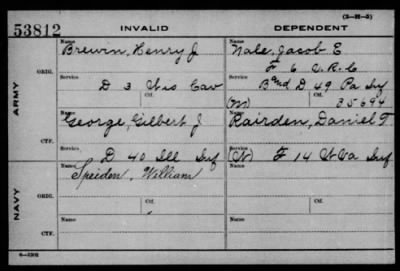 (3-H-5)
53812 INVALID DEPENDENT
Name Name
Brewin, Henry J Nale, Jacob E.
ORIG. F 6 V. R. C
Service Service
D 3 Wis Cav Band D 49 Pa Inf
Ctf. Ctf.
ARMY
(M) 35694
Name Name
George, Gilbert J Rairden, Daniel T
CTF. Service Service
D 40 Ill Inf (W) F 14 W Va Inf
Name Name
Speiden, William
ORIG.
Service Service
Ctf. Ctf.
NAVY
Name Name
CTF.
Service Service
6-3202